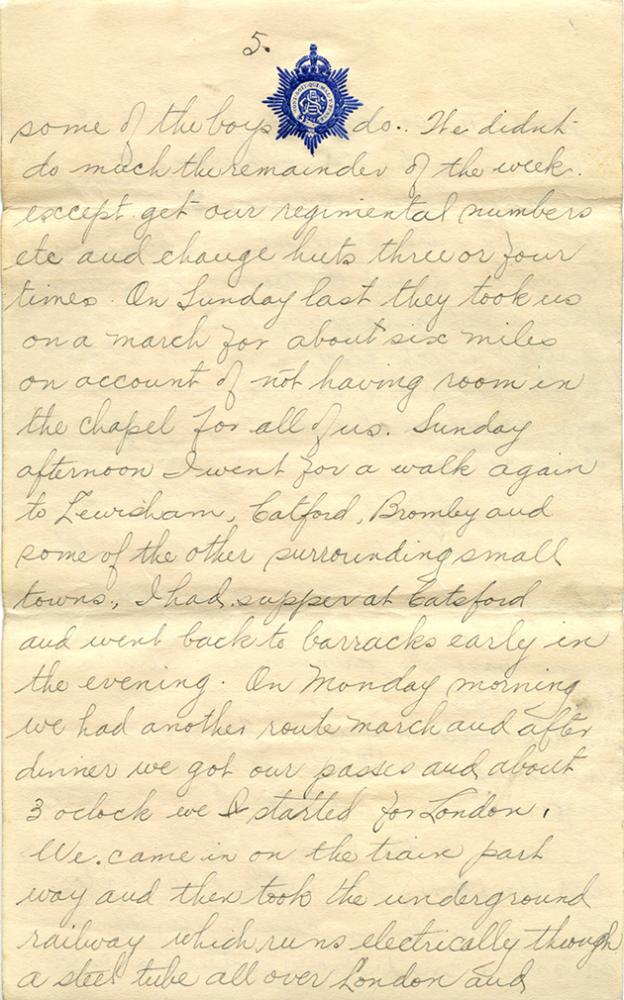 5.
some of the boys do. We didnt
do much the remainder of the week.
except get our regimental numbers
etc and change huts three or four
times. On Sunday last they took us
on a march for about six miles
on account of not having room in
the chapel for all of us. Sunday
afternoon I went for a walk again
to Lewisham, Catford, Bromley and
some of the other surrounding small
towns., I had supper at Catsford
and went back to barracks early in
the evening. On Monday morning
we had another route march and after
dinner we got our passes and about
3 oclock we I started for London.
We. came in on the train part
way and then took the underground
railway which runs electrically through
a steel tube all over London and